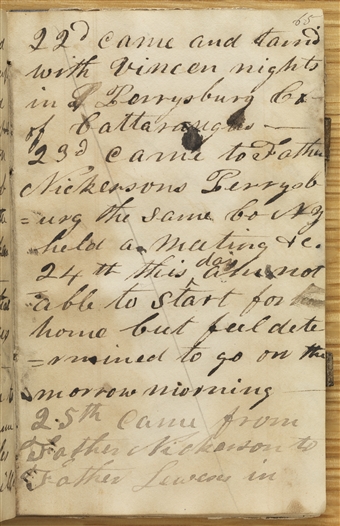 65
22d came and taried
with Vincen nights
in P Perrysburg Co
of Cattaraugus —
23d came to Father
Nickersons Perrysb
=urg the same Co NY
held a meeting &c.
24th this day am not
able to start for
home but feel dete
=rmined to go on the
morrow morning
25th came from
Father Nickerson to
Father Lewces in